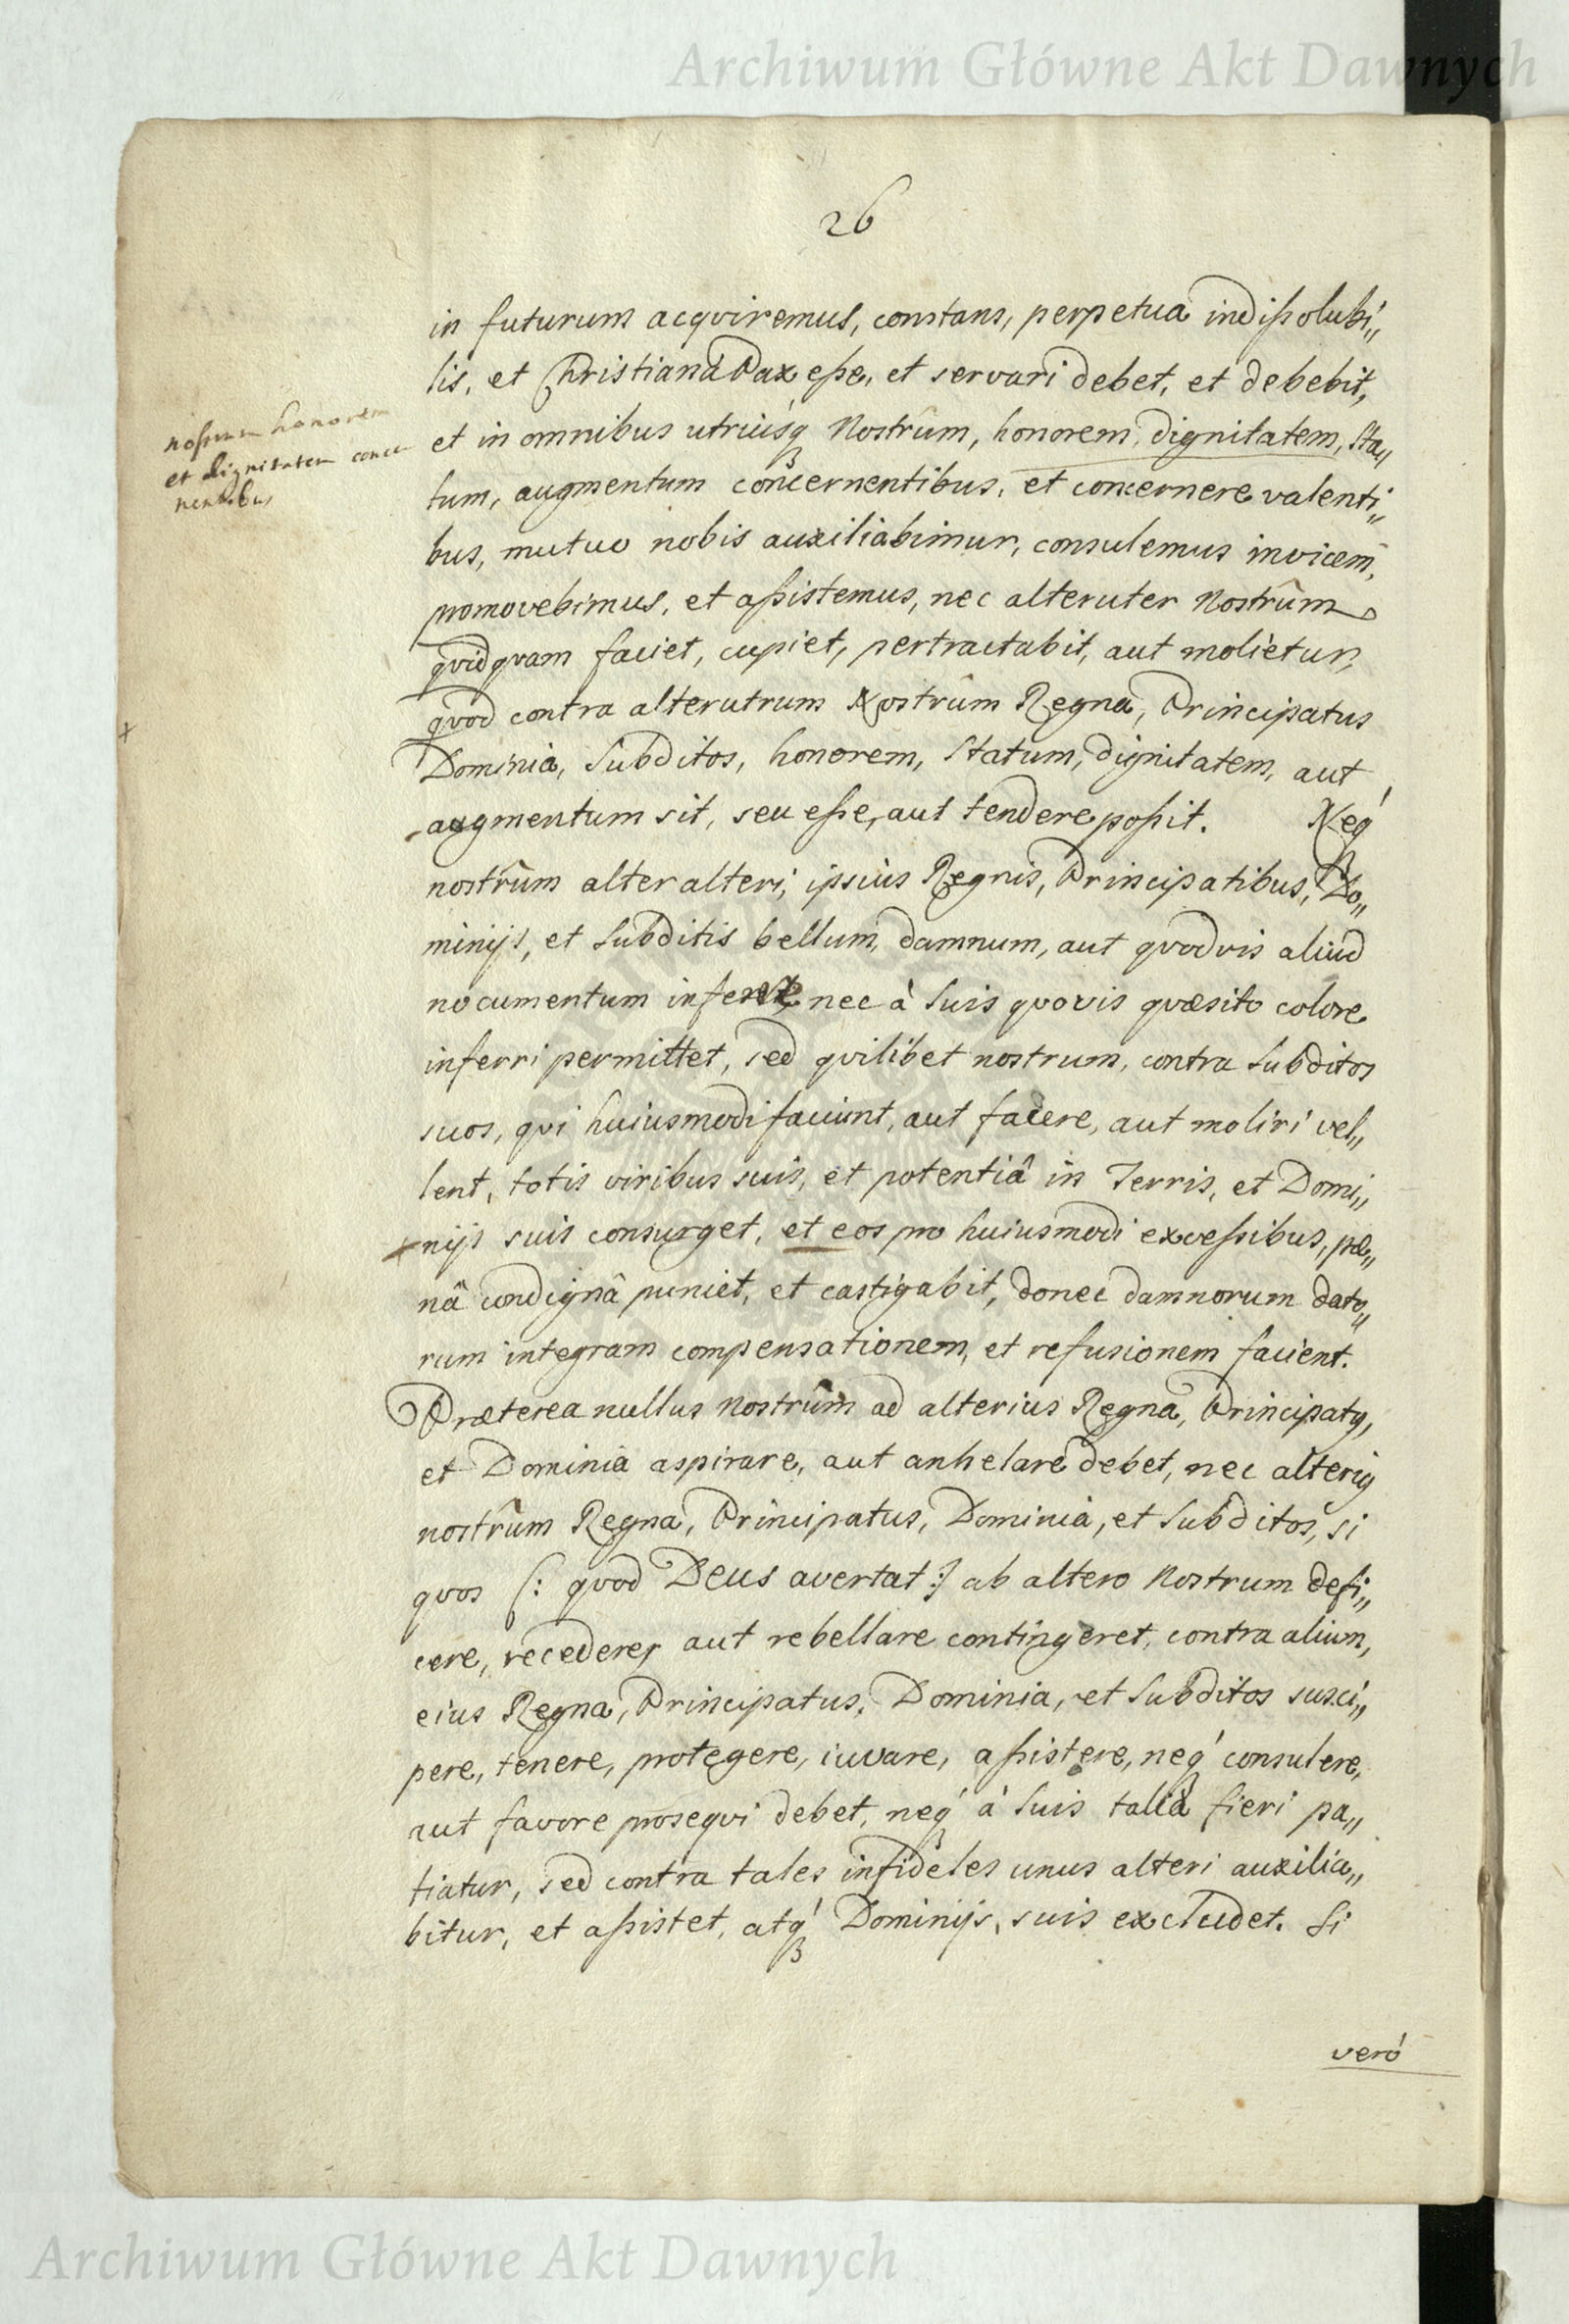 Archiwum Główne Akt Dawnych
26
in futurum acqviremus, constans, perpetua indißolubi„
lis, et Christiana Pax eße, et servari debet, et debebit,
et in omnibus utriúsq Nostrûm, honorem, dignitatem, Sta„
tum, augmentum concernentibus, et concernere valenti„
bus, mutuo nobis auxiliabimur, consulemus invicem,
promovebimus, et aßistemus, nec alteruter Nostrûm
qvidqvam faciet, cupiet, pertractabit, aut molietur,
qvod contra alterutrum Nostrûm Regna, Principatus
Dominia, Subditos, honorem, Statum, dignitatem, aut
augmentum sit, seu eße, aut tendere poßit. Neq́
nostrûm alter alteri, ipsius Regnis, Principatibus, Do„
minijs, et Subditis bellum, damnum, aut qvodvis aliud
nocumentum inferet nec à Suis qvovis qvæsito colore
inferri permittet, sed qvilibet nostrum, contra Subditos
suos, qvi huiusmodi faciunt, aut facere, aut moliri vel„
lent, totis viribus suis, et potentiâ in Terris, et Domi„
nijs suis consurget, et eos pro huiusmodi exceßibus, pæ„
nâ condignâ puniet, et castigabit, donec damnorum dato„
rum integram compensationem, et refusionem facient.
Præterea nullus Nostrûm ad alterius Regna, Principatq,
et Dominia aspirare, aut anhelare debet, nec alteriq
nostrûm Regna, Principatus, Dominia, et Subditos, si
qvos [: qvod Deus avertat :] ab altero Nostrum defi„
cere, recedere, aut rebellare contingeret, contra alium,
eius Regna, Principatus, Dominia, et Subditos susci„
pere, tenere, protegere, iuvare, aßistere, neq́ consulere,
aut favore proseqvi debet, neq́ à Suis talia fieri pa„
tiatur, sed contra tales infideles unus alteri auxilia„
bitur, et aßistet, atq́ Dominijs, suis excludet. Si
verò
noßrum honorem
et dignitatem conce
nentibus
Archiwum Główne Akt Dawnych